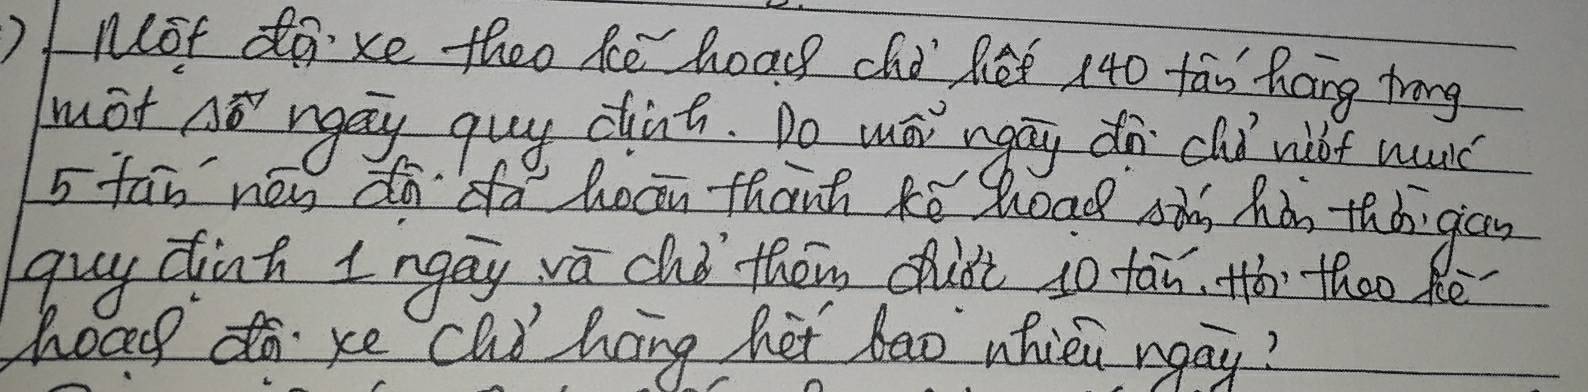 Một đội xe theo kế hoạch chở hết 140 tấn hàng trong
một số ngày quy định. Do mỗi ngày đội chở vượt mức
5 tấn nên đội đã hoàn thành kế hoạch sớm hơn thời gian
quy định 1 ngày và chở thêm được 10 tấn. Hỏi theo kế
hoạch đội xe chở hàng hết bao nhiêu ngày?